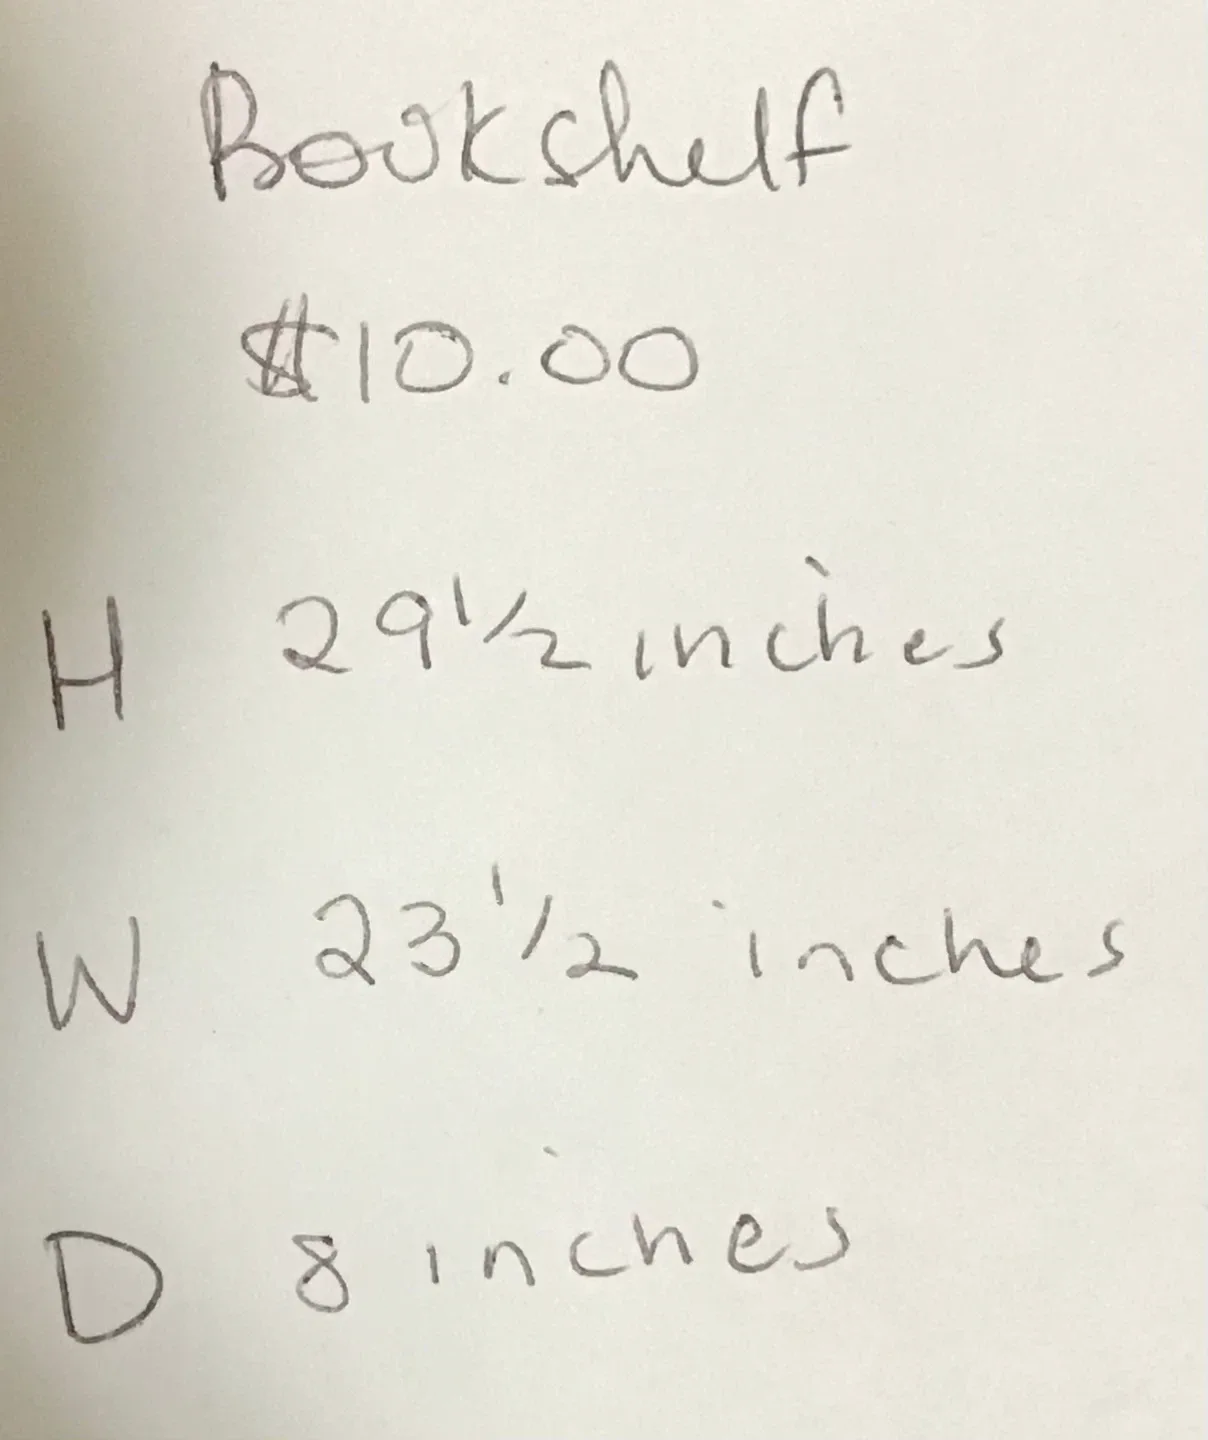 Bookshelf
$10.00
H 29 1/2 inches
W 23 1/2 inches
D 8 inches